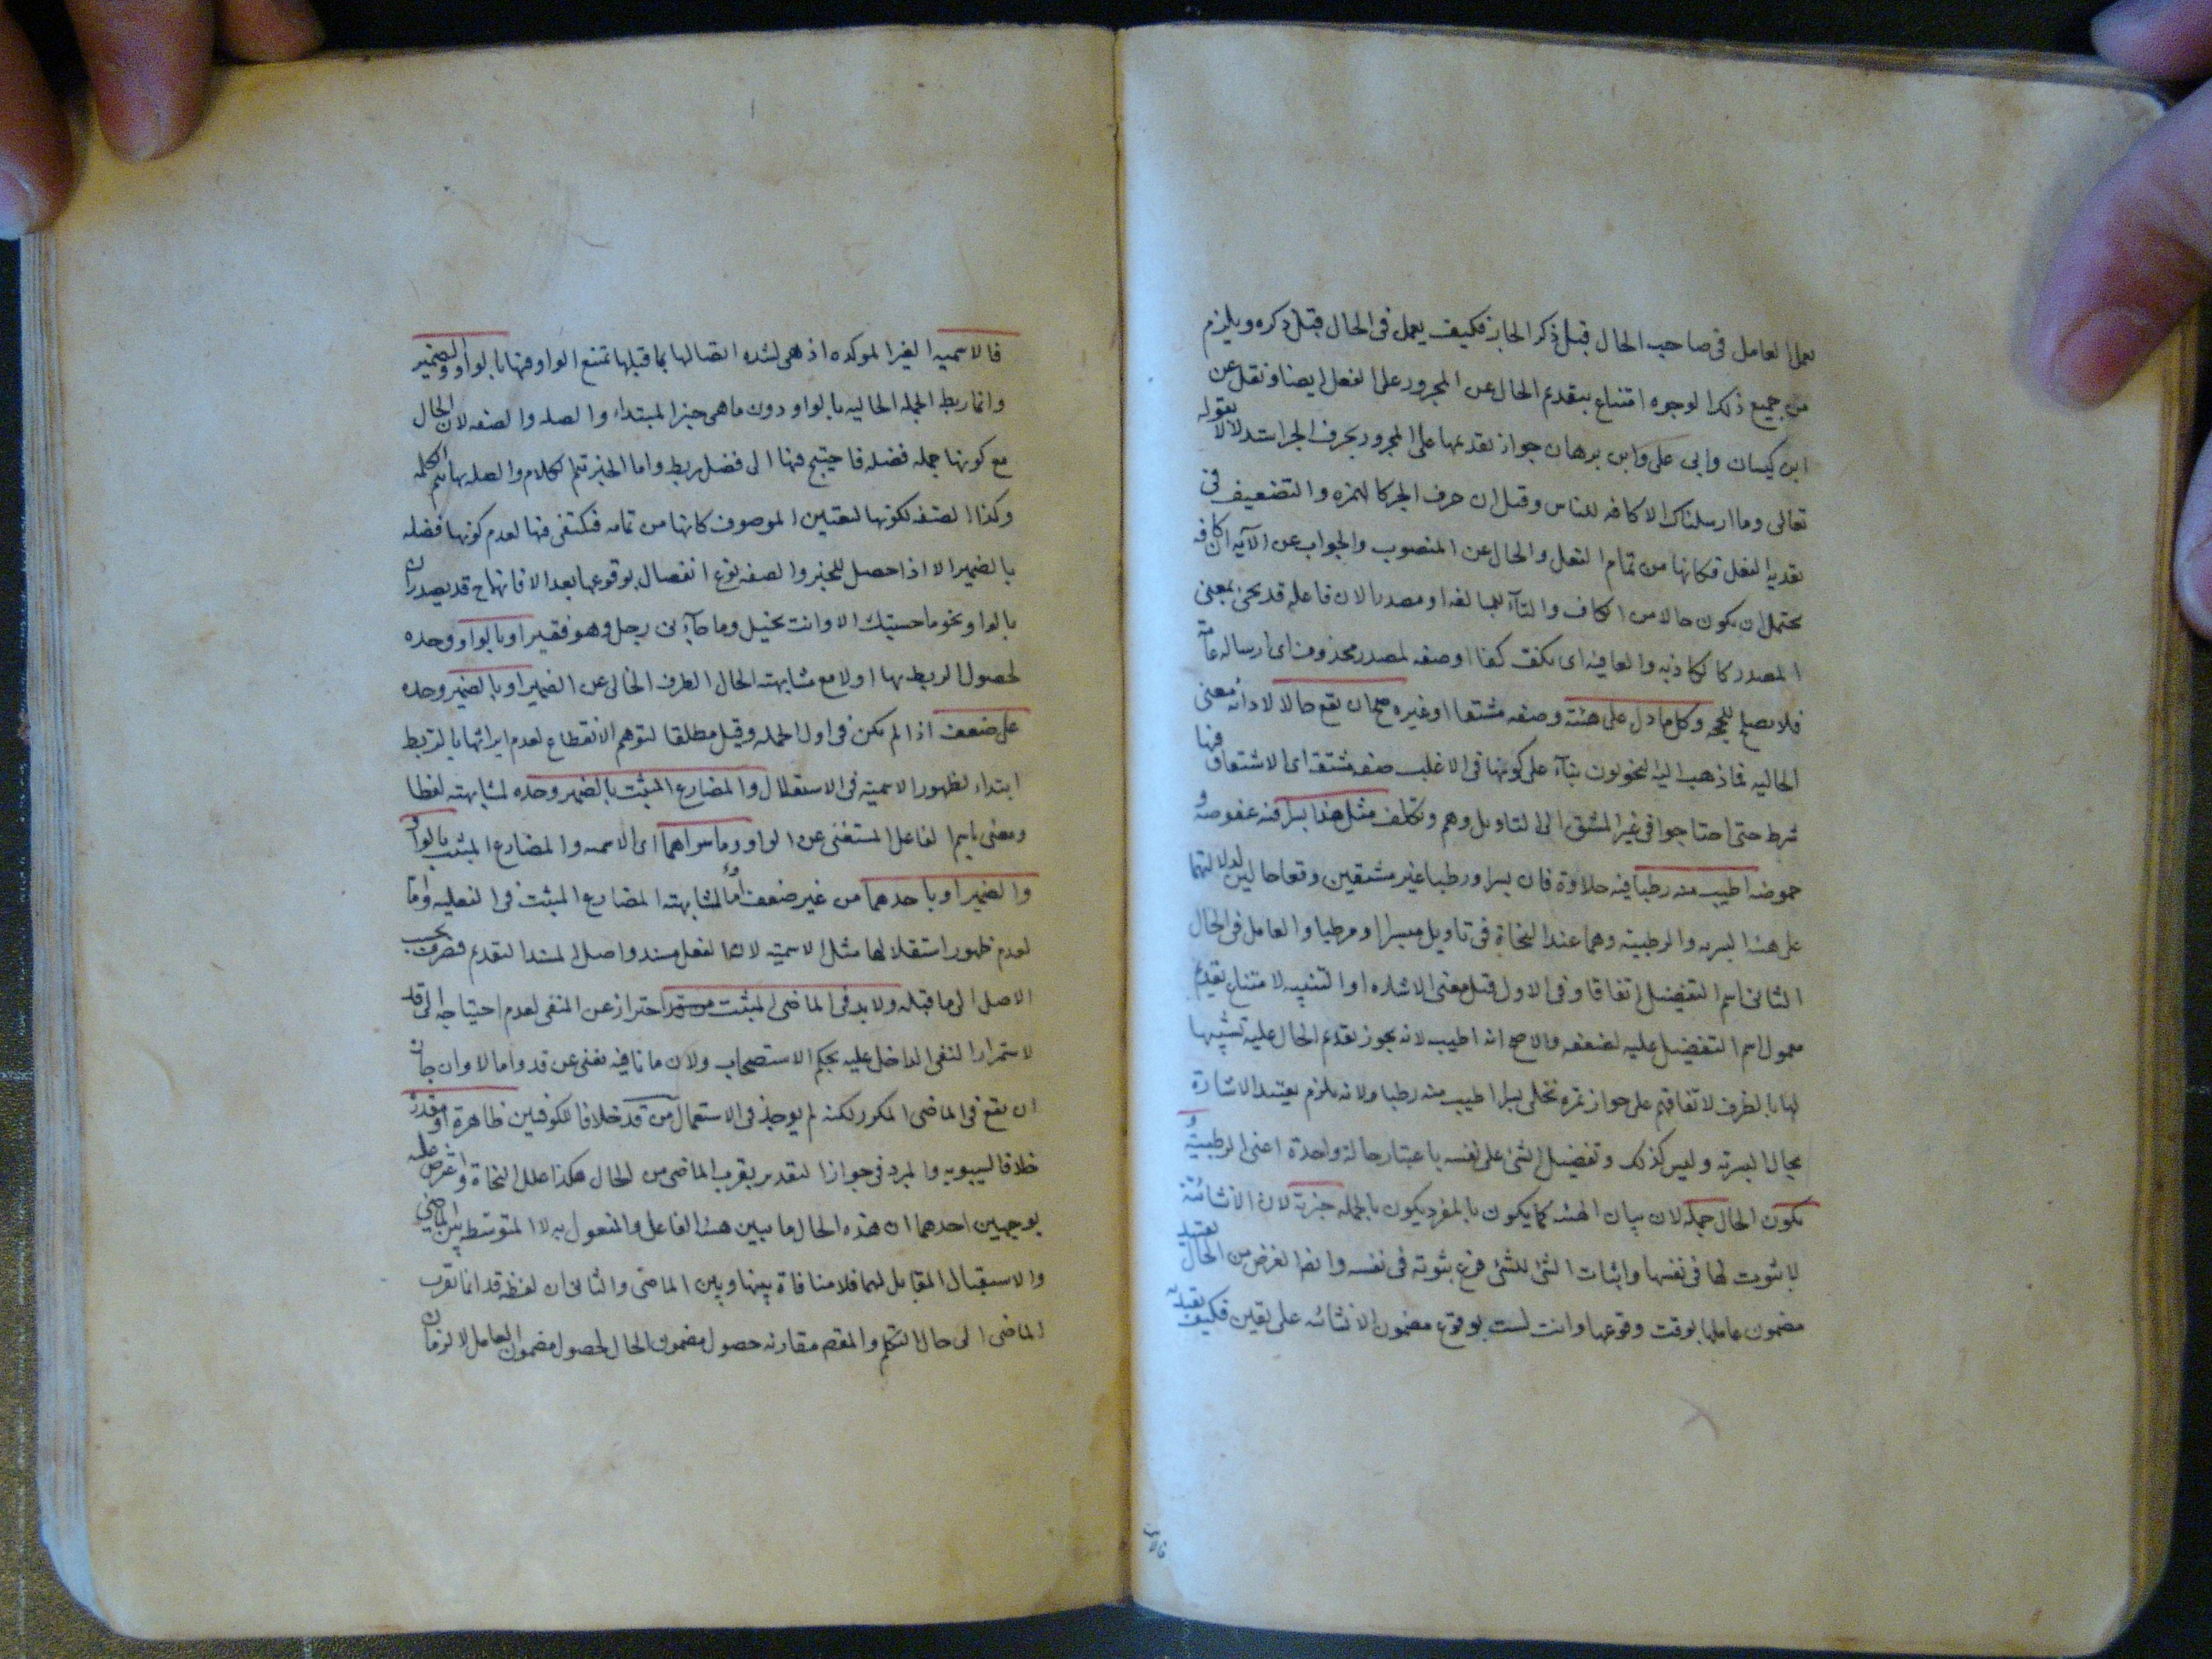 يعمل العامل فى صاحب الحال قبل ذكر الجار فكيف يعمل فى الحال قبل ذكره ويلزم
من جميع ذلك الوجوه امتناع تقدم الحال عن المجرور على الفعل ايضا ونقل عن
ابن كيسان وابى على وابن برهان جواز تقديمها على المجرور بحرف الجر استدلالا بقوله
تعالى وما ارسلناك الا كافه للناس وقيل ان حرف الجر كالهمزه والتضعيف فى
تعدية الفعل فكانها من تمام الفعل والحال عن المنصوب والجواب عن الآيه ان كافه
يحتمل ان يكون حالا من الكاف والتآء للمبالغه او مصدرا لان فاعله قد يجئ بمعنى
المصدر كالكاذبه والعافيه اى تكف كفا او صفه لمصدر محذوف اى ارساله عامة
فلا يصلح للحجه وكل ما دل على هيئة وصفه مشتقا او غيره صح ان يقع حالا لادائه معنى
الحاليه فما ذهب اليه النحويون بنآء على كونها فى الاغلب صفه مشتقه اى الاشتقاق فيها
شرط حتى احتاجوا فى غير المشتق الى التاويل وهم وتكلف مثل هذا بسرا فيه عفوصه و
حموضه اطيب منه رطبا فيه حلاوة فان بسرا ورطبا غير مشتقين وقعا حالين لدلالتهما
على هيئة البسريه والرطبيه وهما عند النحاة فى تاويل مبسرا ومرطبا والعامل فى الحال
الثانى اسم التفضيل اتفاقا وفى الاول قيل معنى الاشاره او التنبيه لامتناع تقديم
معمول اسم التفضيل عليه لضعفه والاصح انه اطيب لانه يجوز تقدم الحال عليه تشبيها
لها بالظرف لاتفاقهم على جواز تمره نخلى بسرا اطيب منه رطبا ولانه يلزم تقييد الاشارة
بحال البسريه وليس كذلك وتفضيل الشئ على نفسه باعتبار حالة واحدة اعنى الرطبية و
يكون الحال جملة لان بيان الهيئه كما يكون بالمفرد يكون بالجمله خبرية لان الانشائية
لا ثبوت لها فى نفسها واثبات الشئ للشئ فرع ثبوته فى نفسه وايضا الغرض من الحال تقييد
مضمون عاملها بوقت وقوعها وانت لست بوقوع مضمون الانشائه على يقين فكيف تقيد به
فالا
فالاسميه الغير الموكده اذ هى لشده اتصالها بما قبلها تمتنع الواو فيها بالواو والضمير
وانما ربط الجمله الحاليه بالواو دون ما هى خبر المبتداء والصله والصفه لان الحال
مع كونها جمله فضله فاحتيج فيها الى فضل ربط واما الخبر تتم الكلام والصله بها تتم الكلمه
وكذا الصفه لكونها لتعيين الموصوف كانها من تمامه فيكتفى فيها لعدم كونها فضله
بالضمير الا اذا حصل للخبر والصفه نوع انفصال بوقوعها بعد الا فانهما ح قد يصدران
بالواو نحو ما حسبتك الا وانت بخيل وما جآءنى رجل وهو فقير او بالواو وحده
لحصول الربط بها اولا مع مشابهته الحال الظرف الخالى عن الضمير او بالضمير وحده
على ضعف اذا لم يكن فى اول الجمله وقيل مطلقا لتوهم الانقطاع لعدم ايرائها بالربط
ابتداء لظهور الاسميه فى الاستقلال والمضارع المثبت بالضمير وحده لمشابهته لفظا
ومعنى باسم الفاعل المستغنى عن الواو وما سواهما اى الاسميه والمضارع المثبت بالواو
والضمير او باحدهما من غير ضعف اما لمشابهته المضارع المثبت فى الفعليه واما
لعدم ظهور استقلالها مثل الاسميه لان الفعل مسند واصل المسند التقدم فيصرف بحسب
الاصل الى ما قبله ولا بد فى الماضى المثبت احتراز عن المنفى لعدم احتياجه الى قد
لاستمرار النفى الداخل عليه بحكم الاستصحاب ولان ما نافيه تغنى عن قد واما لا وان جاز
ان يقع فى الماضى المكرر لكنه لم يوجد فى الاستعمال من قد خلافا للكوفيين ظاهرة او مقدرة
خلافا لسيبويه والمبرد فى جواز التقدير يقرب الماضى من الحال هكذا علل النحاة واعترض عليه
بوجهين احدهما ان هذه الحال ما يبين هيئة الفاعل والمفعول به لا المتوسطه بين الماضى
والاستقبال المقابل لهما فلا منافاة بينها وبين الماضى والثانى ان لفظه قد انما تقرب
الماضى الى حال التكلم والمقصد مقارنه حصول مضمون الحال لحصول مضمون العامل لا لزمان